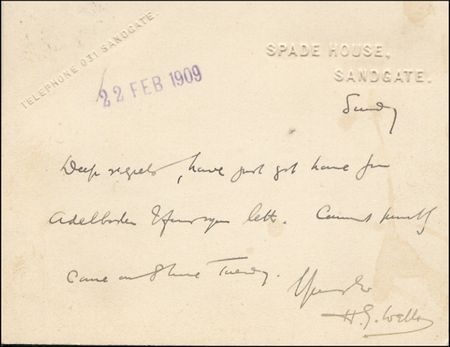 TELEPHONE 031 SANDGATE.
SPADE HOUSE,
SANDGATE.
22 FEB 1909
Sunday
Deep regrets, have just got home from
Adelboden & found your letter. Cannot possibly
come on Tuesday.
H. G. Wells